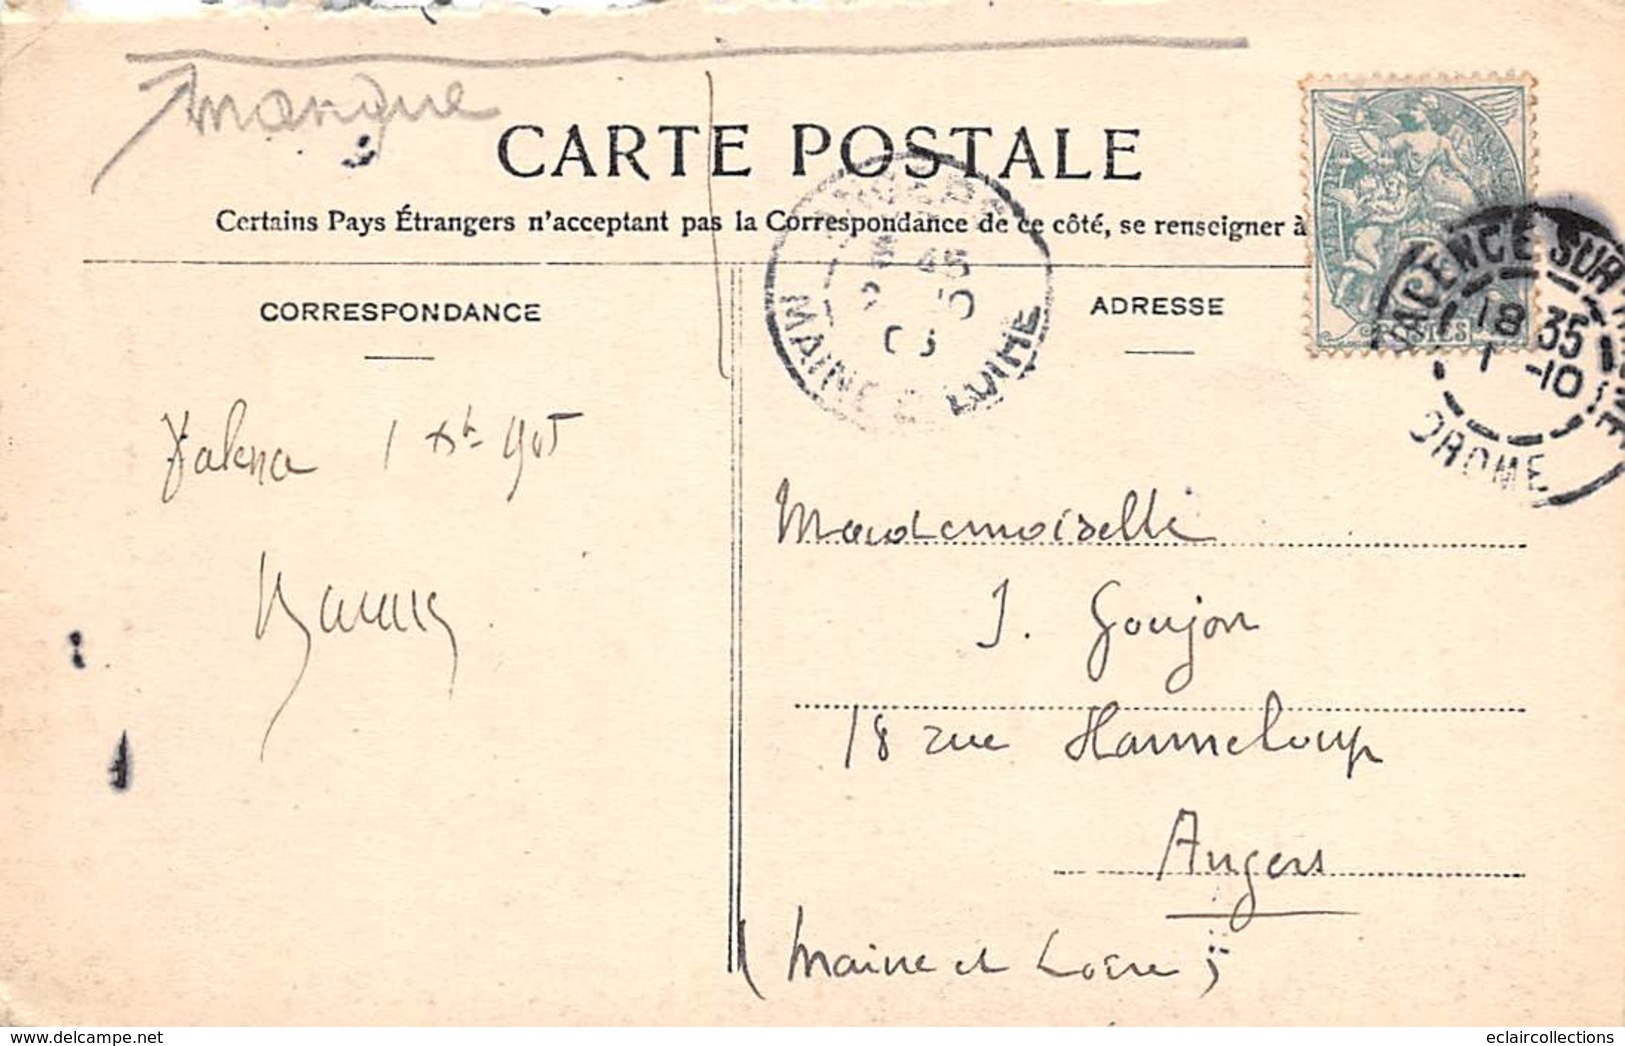 manque
CARTE POSTALE
Certains Pays Étrangers n'acceptant pas la Correspondance de ce côté, se renseigner à
CORRESPONDANCE
ADRESSE
MAINE ET LOIRE
45
VALENCE SUR RHONE
18 35
1 -10
DROME
POSTES
1 905
Mademoiselle
J. Goujon
18 rue Hanneloup
Angers
(Maine et Loire)
delcampe.net
eclaircollections